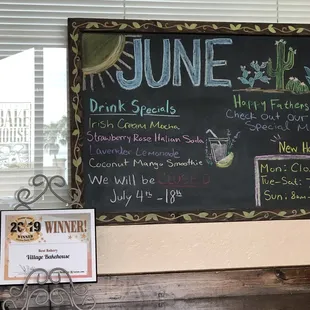 JUNE
Drink Specials
Irish Cream Mocha
Strawberry Rose Italian Soda
Lavender Lemonade
Coconut Mango Smoothie
We will be CLOSED
July 4th - 18th
Happy
Fathers
Check out our
Special M
New Ho
Mon: Clo
Tue-Sat: 7
Sun: 8am
2019 WINNER!
Best Bakery
Village Bakehouse
HOUSE